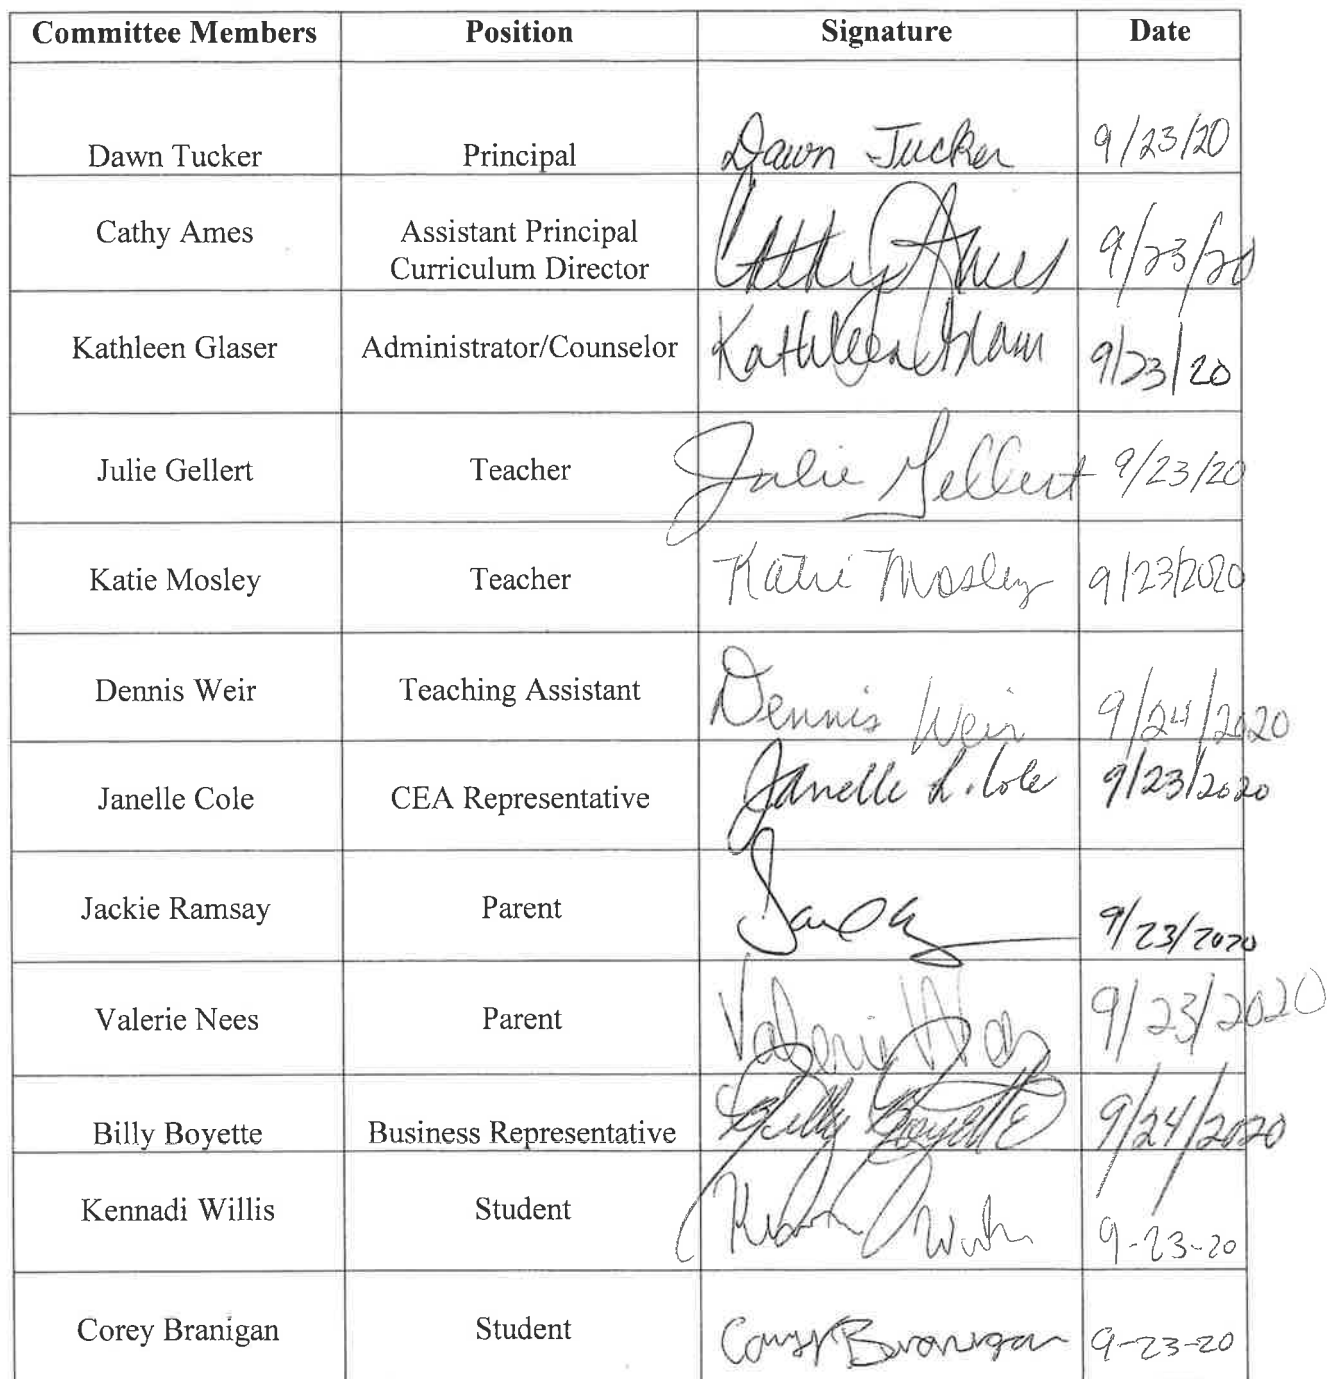 Committee Members Position Signature Date
Dawn Tucker Principal Dawn Tucker 9/23/20
Cathy Ames Assistant Principal Cathy Ames 9/23/20
Curriculum Director
Kathleen Glaser Administrator/Counselor Kathleen 9/23/20
Julie Gellert Teacher Julie Gellert 9/23/20
Katie Mosley Teacher Katie Mosley 9/23/2020
Dennis Weir Teaching Assistant Dennis Weir 9/24/2020
Janelle Cole CEA Representative Janelle L. Cole 9/23/2020
Jackie Ramsay Parent 9/23/2020
Valerie Nees Parent Valerie Nees 9/23/2020
Billy Boyette Business Representative Billy Boyette 9/24/2020
Kennadi Willis Student 9-23-20
Corey Branigan Student Corey Branigan 9-23-20